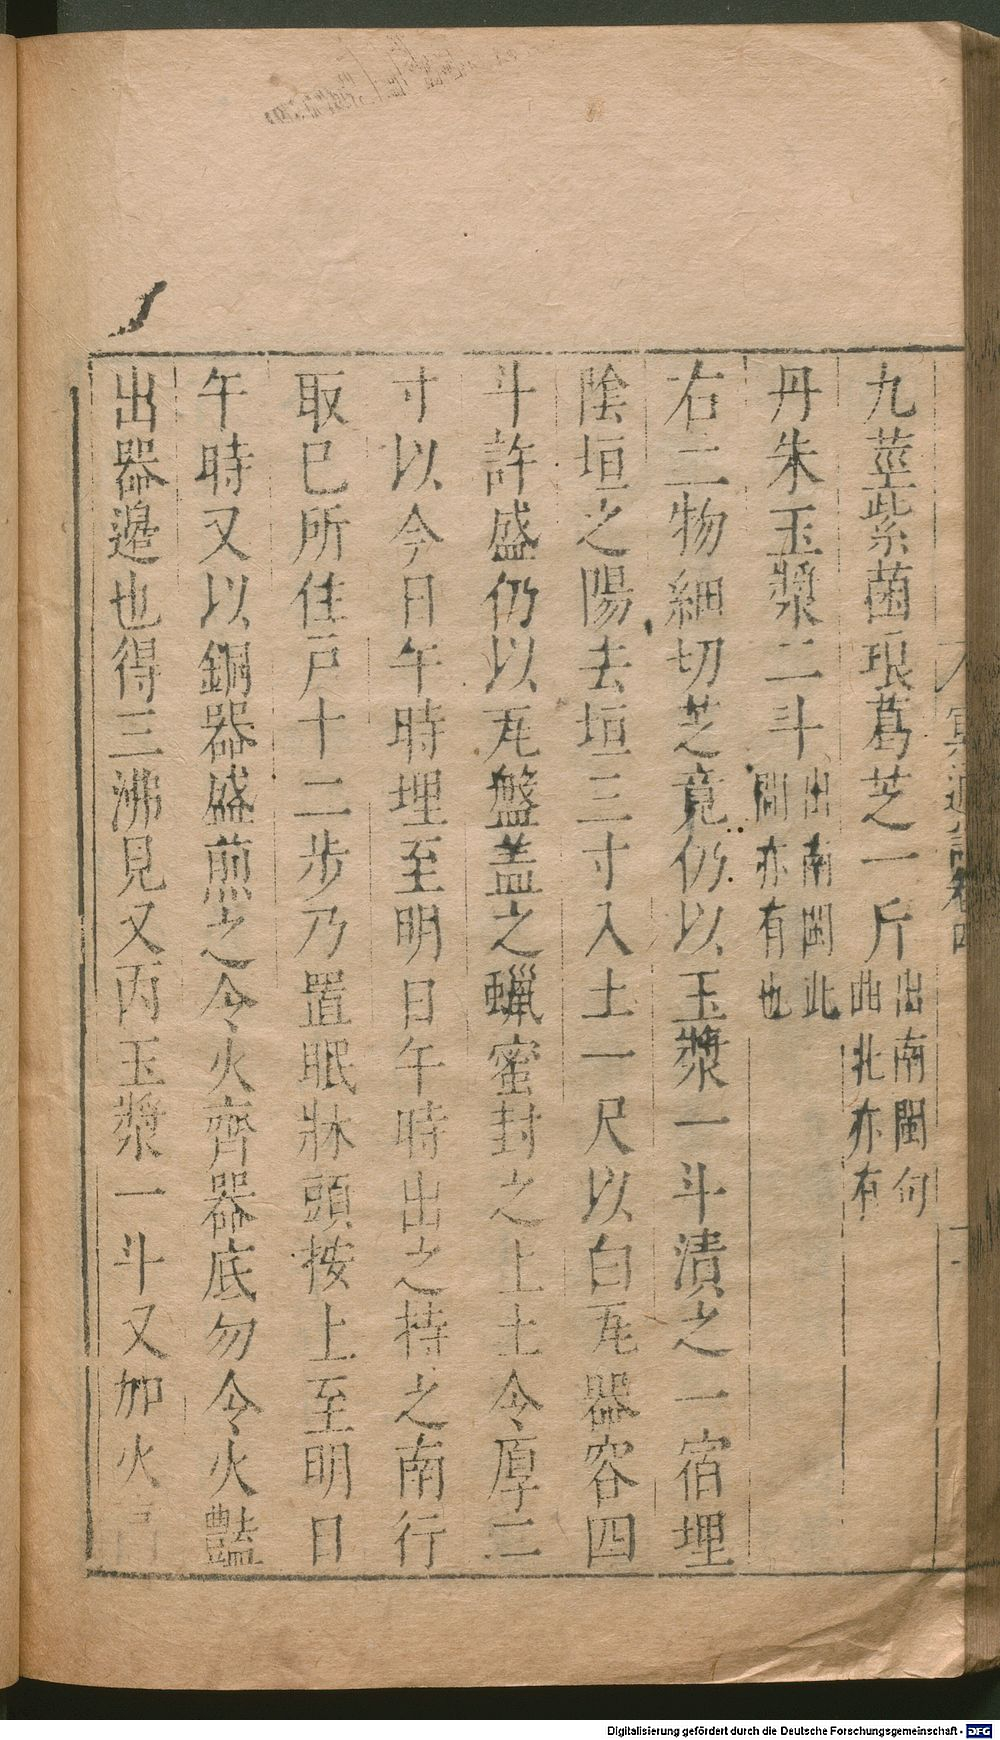 冥通記卷四
九莖紫菌琅葛芝一斤出南閩句曲北亦有
丹朱玉漿二斗出南閩此間亦有也
右二物細切芝竟仍以玉漿一斗漬之一宿埋
陰垣之陽去垣三寸入土一尺以白瓦器容四
斗許盛仍以瓦盤盖之蠟蜜封之上土令厚二
寸以今日午時埋至明日午時出之持之南行
取已所住戶十二步乃置眠牀頭按上至明日
午時又以銅器盛煎之令火齊器底勿令火豔
出器邉也得三沸見又丙玉漿一斗又加火
Digitalisierung gefördert durch die Deutsche Forschungsgemeinschaft - DFG